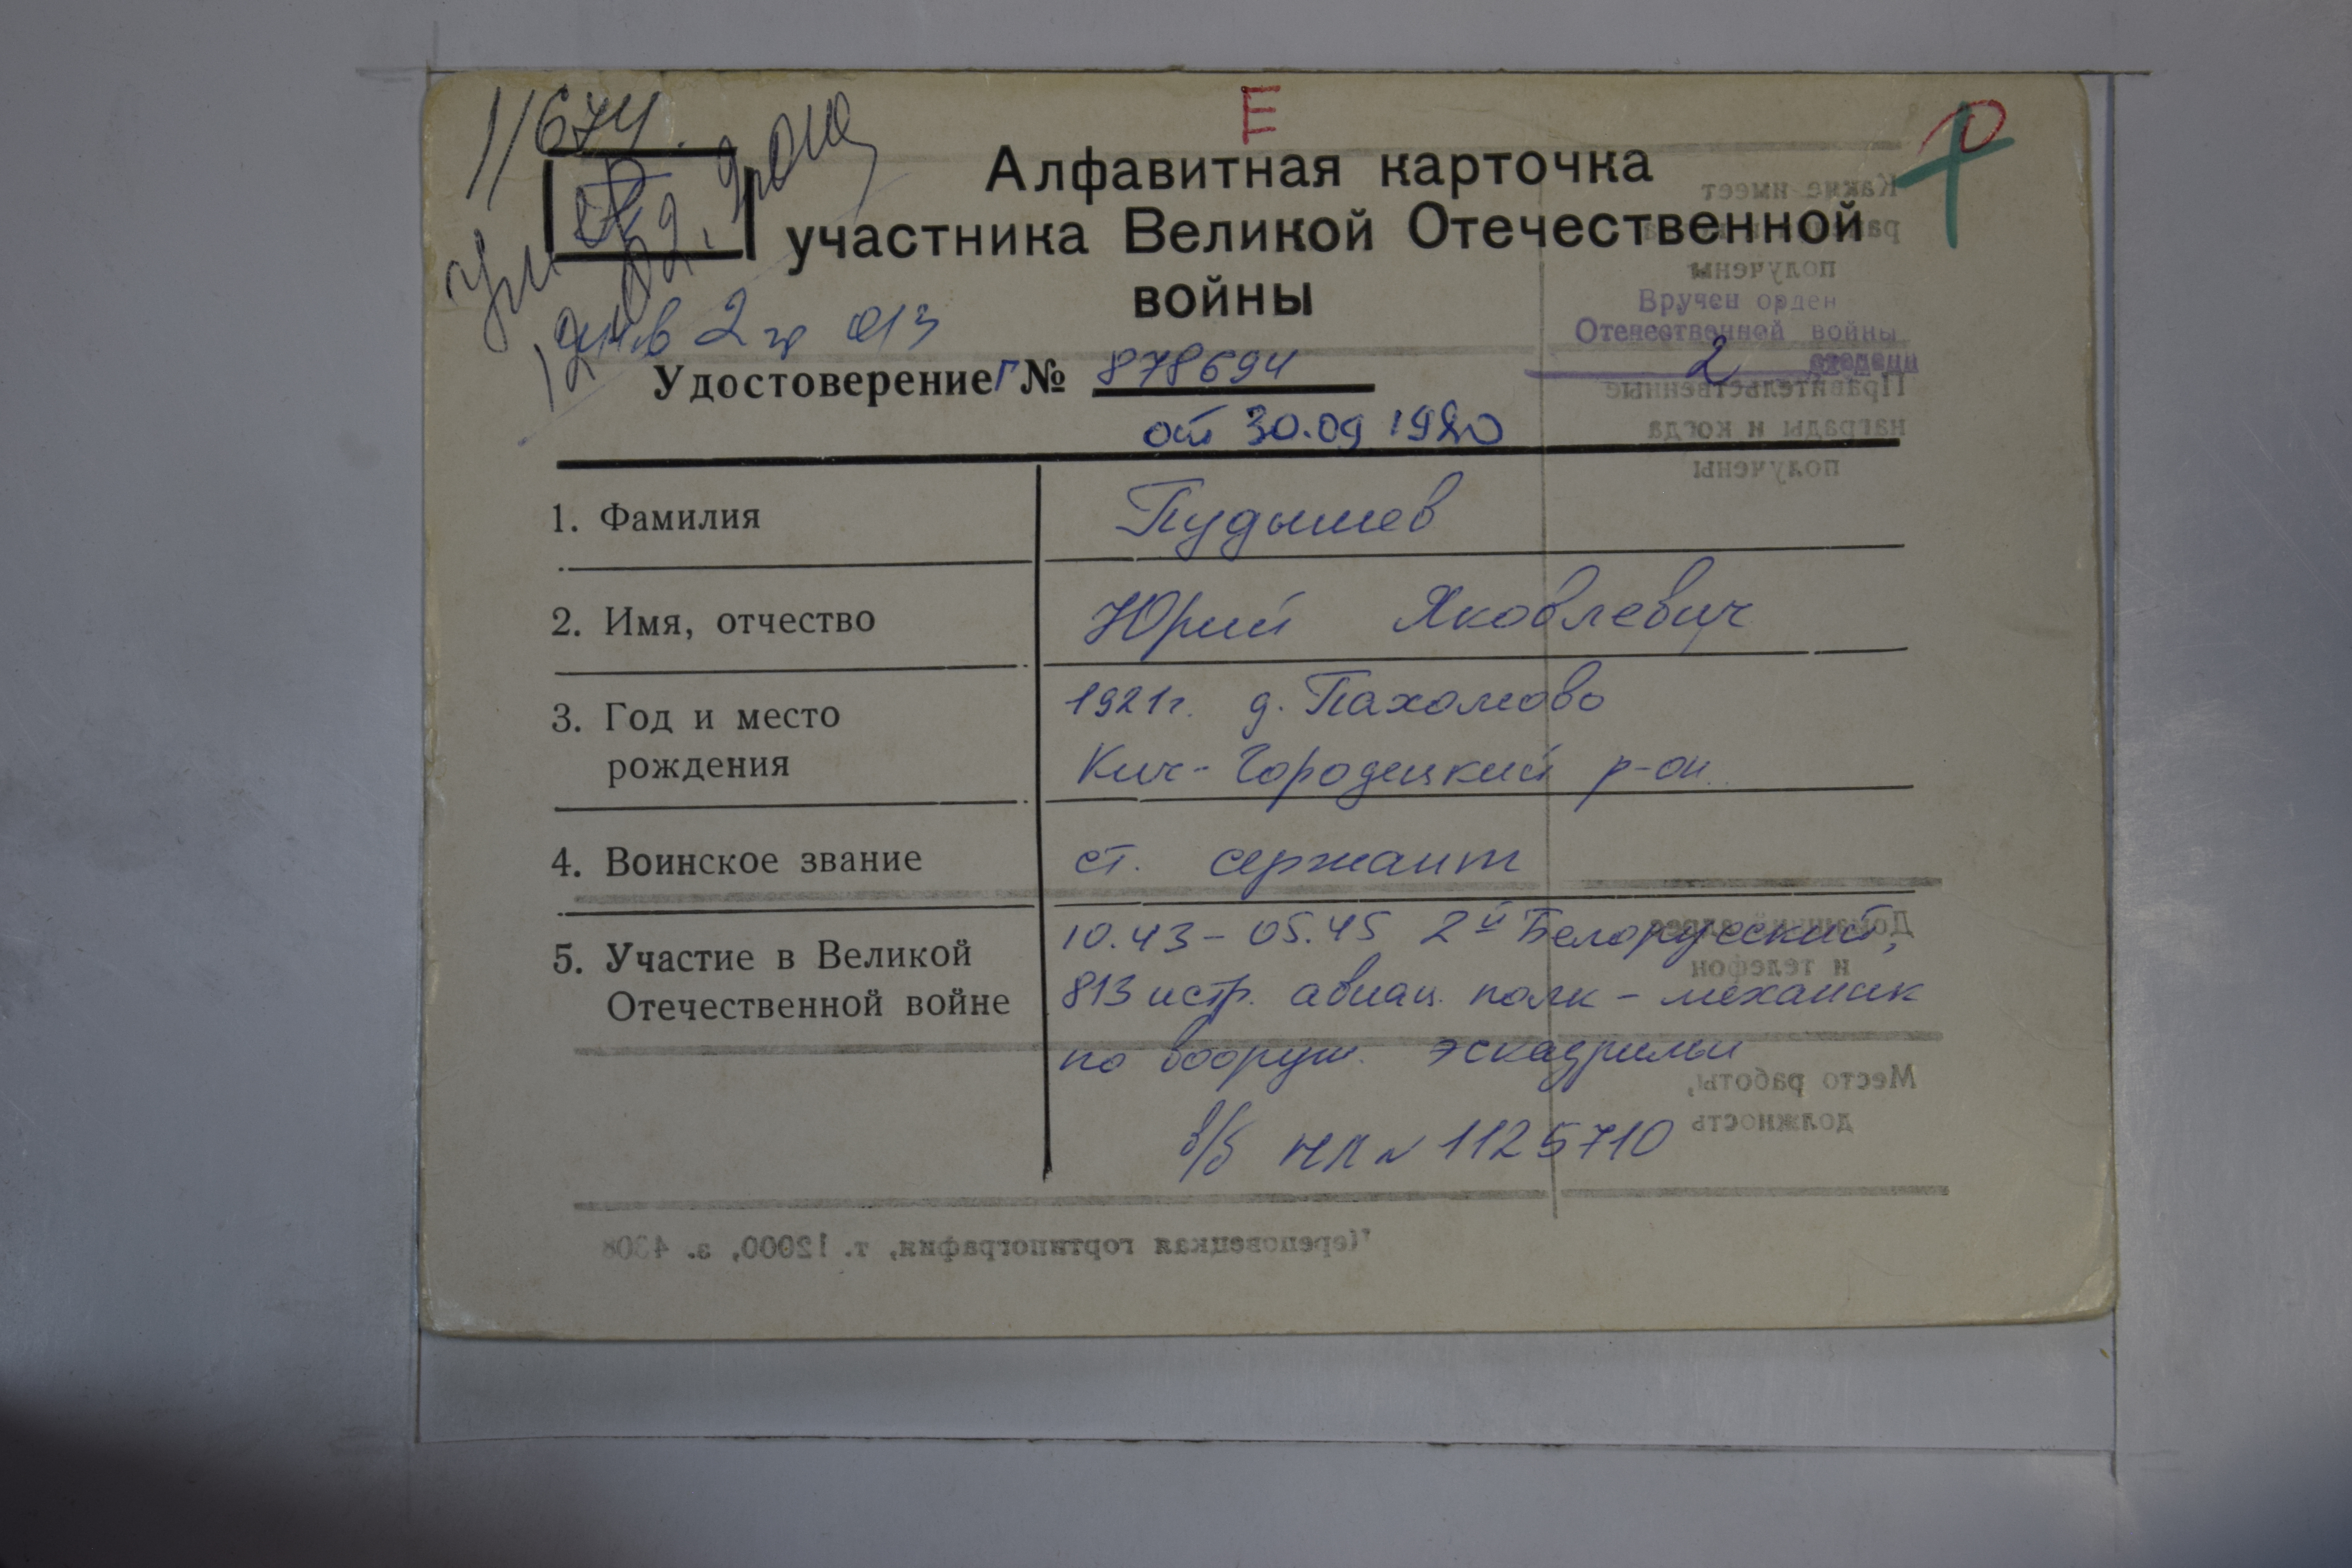 11674.
Е
О
Алфавитная карточка
участника Великой Отечественной
войны
инв 2 гр
Вручен орден
Отечественной войны
2 степени
Удостоверение Г № 878694
от 30.09 1980
1. Фамилия Пудышев
2. Имя, отчество Юрий Яковлевич
3. Год и место 1921г. д. Пахомово
рождения Кич-Городецкий р-он.
4. Воинское звание ст. сержант
5. Участие в Великой 10.43 – 05.45 2й Белорусский,
Отечественной войне 813 истр. авиац. полк – механик
по вооруж. эскадрильи
в/б НЛ № 1125710
Какие имеет
получены
Правительственные
награды и когда
получены
Домашний адрес
и телефон
Место работы,
должность
Череповецкая гортипография, т. 12000, з. 4308